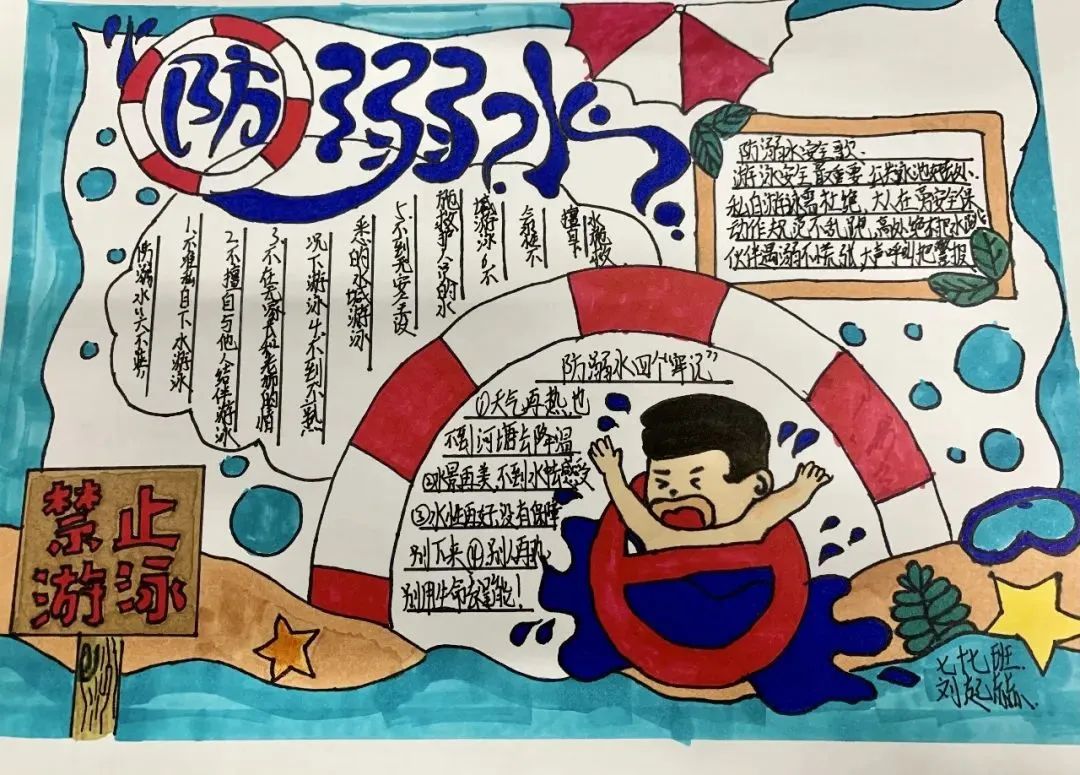 防溺水
防溺水"六不准"
1.不准私自下水游泳
2.不擅自与他人结伴游泳
3.不在无家长和老师的情
况下游泳4.不到不熟
悉的水域游泳
5.不到无安全设
施救护人员的水
域游泳6.不
会水性不
擅下
水施救
防溺水安全歌.
游泳安全最重要 公共泳池
私自游泳需杜绝 大人在旁安全保
动作规范不乱跑,高处绝不把水跳
伙伴遇溺不慌张 大声呼叫把警报
防溺水四个"牢记"
①天气再热也
不到河塘去降温
②水景再美不到水 感受
③水性再好没有保障
别下来④别人再
别用生命去逞能!
禁止
游泳
七 班.
刘起